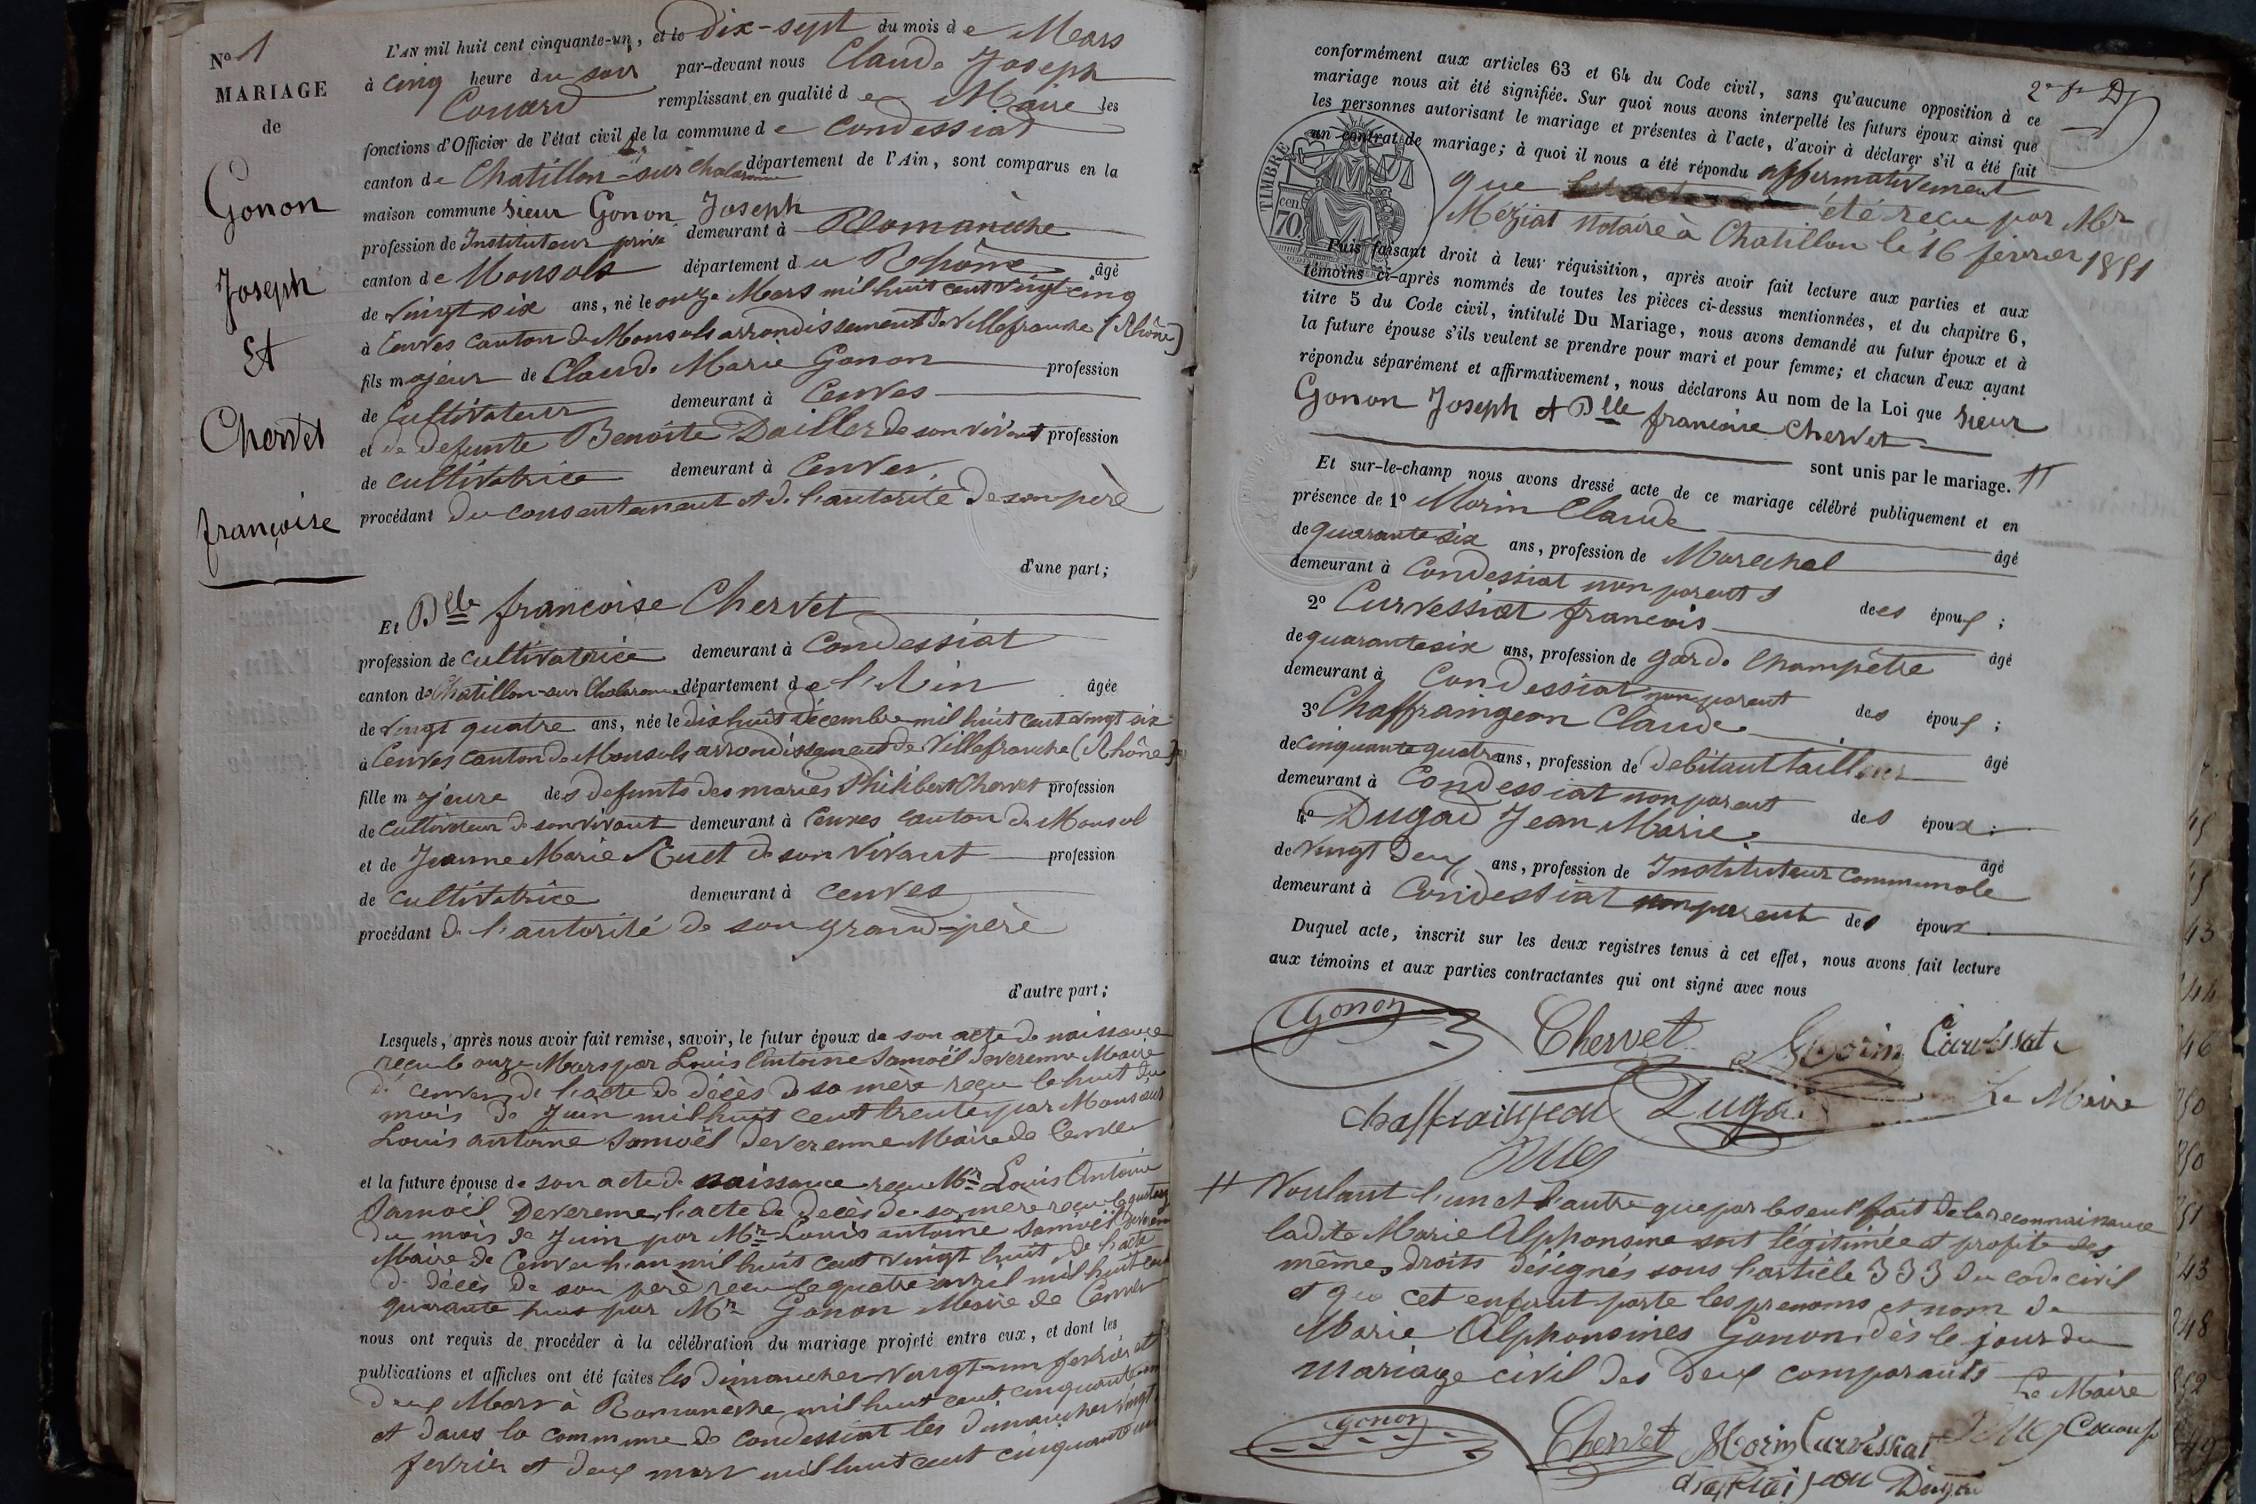 No 1
MARIAGE
de
Gonon
Joseph
Et
Chervet
françoise
L'AN mil huit cent cinquante-un, et le Dix-sept du mois de Mars
à cinq heure du soir par-devant nous Claude Joseph
Couard remplissant en qualité de Maire les
fonctions d'Officier de l'état civil de la commune de Condessiat
canton de Chatillon-sur Chalaronne département de l'Ain, sont comparus en la
maison commune sieur Gonon Joseph
profession de Instituteur privé demeurant à Romanèche
canton de Monsols département du Rhône âgé
de vingt six ans, né le onze Mars mil huit cent vingt cinq
à Cenves canton de Monsols arrondissement de Villefranche (Rhône)
fils majeur de Claude Marie Gonon profession
de Cultivateur demeurant à Cenves
et de defunte Benoite Dailler de son vivant profession
de cultivatrice demeurant à Cenves
procédant du consentement et de l'autorité de son père
d'une part;
Et Dlle françoise Chervet
profession de cultivatrice demeurant à Condessiat
canton de Chatillon-sur Chalaronne département de l'Ain âgée
de vingt quatre ans, née le dix huit décembre mil huit cent vingt six
à Cenves canton de Monsols arrondissement de Villefranche (Rhône)
fille majeure des defunts des mariés Philibert Chervet profession
de Cultivateur de son vivant demeurant à Cenves canton de Monsol
et de Jeanne Marie de son vivant profession
de cultivatrice demeurant à cenves
procédant de l'autorité de son grand-père
d'autre part;
Lesquels, après nous avoir fait remise, savoir, le futur époux de son acte de naissance
reçu le onze Mars par Louis Antoine Samoël Deverenne Maire
de cenves de l'acte de décès de sa mère reçu le huit du
mois de Juin mil huit cent trente par Monsieur
Louis antoine Samoël Deverenne Maire de Cenves
et la future épouse de son acte de naissance reçu Mr Louis Antoine
Samoël Deverenne, l'acte de décès de sa mère reçu le
du mois de Juin par Mr Louis antoine Samoël
Maire de Cenves l'an mil huit cent vingt huit de l'acte
de décès de son père reçu le quatre avril mil huit cent
quarante par Mr Gonon Maire de Cenves
nous ont requis de procéder à la célébration du mariage projeté entre eux, et dont les
publications et affiches ont été faites les dimanches vingt-un fevrier et
deux Mars à Romanèche mil huit cent cinquante un
et dans la commune de condessiat les dimanches vingt
fevrier et deux mars mil huit cent cinquante un
2e fe D
conformément aux articles 63 et 64 du Code civil, sans qu'aucune opposition à ce
mariage nous ait été signifiée. Sur quoi nous avons interpellé les futurs époux ainsi que
les personnes autorisant le mariage et présentes à l'acte, d'avoir à déclarer s'il a été fait
un contrat de mariage; à quoi il nous a été répondu affirmativement
que été reçu par Mr
Méziat Notaire à Chatillon le 16 fevrier 1851
TIMBRE
70 cen
Puis faisant droit à leur réquisition, après avoir fait lecture aux parties et aux
témoins ci-après nommés de toutes les pièces ci-dessus mentionnées, et du chapitre 6,
titre 5 du Code civil, intitulé Du Mariage, nous avons demandé au futur époux et à
la future épouse s'ils veulent se prendre pour mari et pour femme; et chacun d'eux ayant
répondu séparément et affirmativement, nous déclarons Au nom de la Loi que sieur
Gonon Joseph et Dlle françoise Chervet
sont unis par le mariage. #
Et sur-le-champ nous avons dressé acte de ce mariage célébré publiquement et en
présence de 1o Morin Claude âgé
de quarante six ans, profession de Marechal
demeurant à Condessiat non parent des époux;
2o Curvessiat francois âgé
de quarante six ans, profession de garde Champêtre
demeurant à Condessiat non parent des époux;
3o Chaffraingeon Claude âgé
de cinquante quatre ans, profession de debitant tailleur
demeurant à Condessiat non parent des époux;
4o Dugad Jean Marie âgé
de vingt deux ans, profession de Instituteur communale
demeurant à Condessiat non parent des époux
Duquel acte, inscrit sur les deux registres tenus à cet effet, nous avons fait lecture
aux témoins et aux parties contractantes qui ont signé avec nous
Gonon Chervet Morin Curvéssiat
Le Maire
# Voulant l'un et l'autre que par le seul fait de la reconnaissance
ladite Marie Alphonsine soit légitimée et profite des
mêmes droits désignés sous l'article 333 du code civil
et que cet enfant porte les prenoms et nom de
Marie Alphonsines Gonon dès le jour du
mariage civil des deux comparants
Le Maire
Gonon Chervet Morin Curvéssiat Couard
Dugad